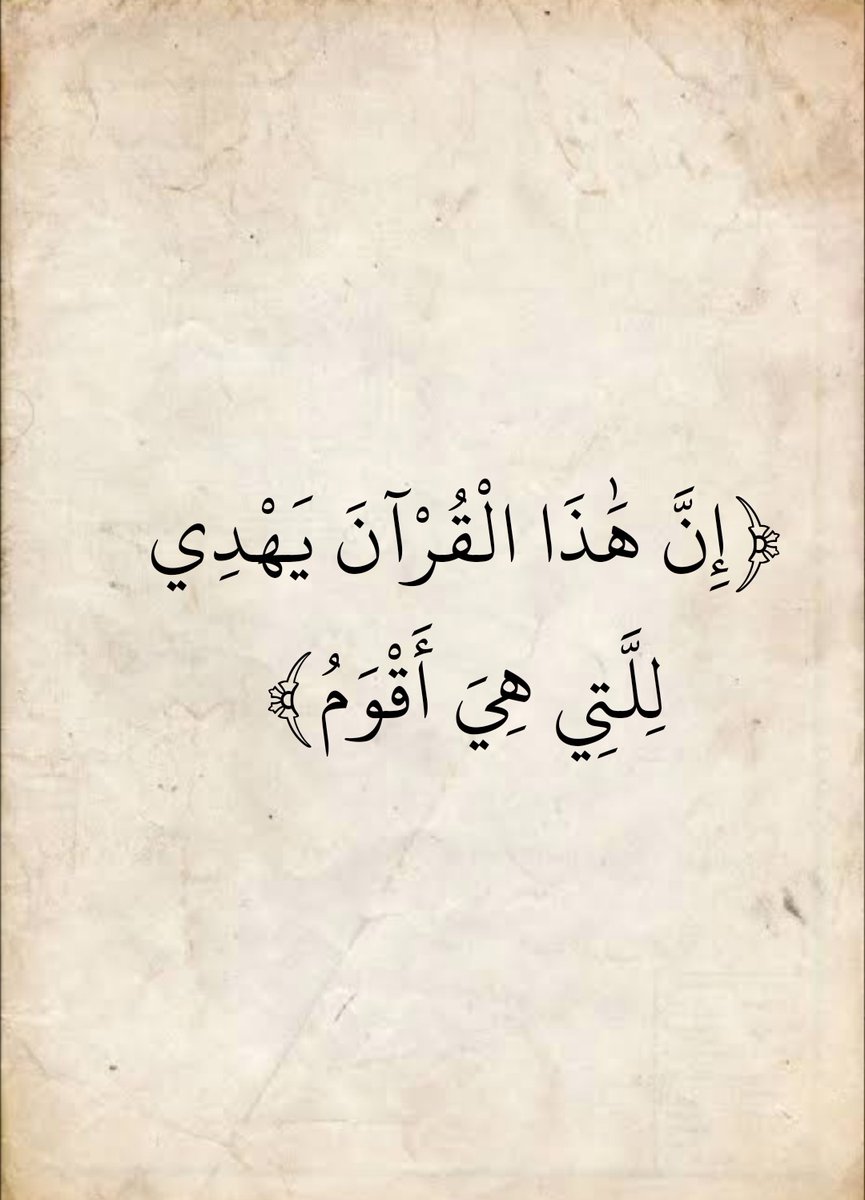 ﴿إِنَّ هَٰذَا الْقُرْآنَ يَهْدِي
لِلَّتِي هِيَ أَقْوَمُ﴾